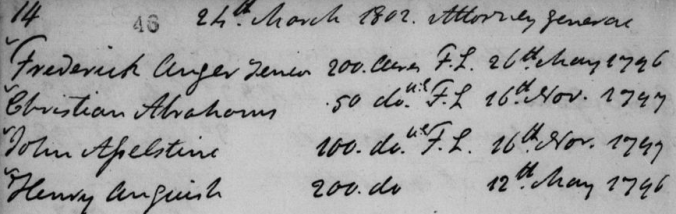 14 46 24th March 1802. Attorney General
Frederick Anger Senior 200. Acres F.L. 26th May 1796
Christian Abrahams 50 do. U.E. F.L 16th Nov. 1797
John Asselstine 100. do. U.E. F.L. 16th Nov. 1797
Henry Anguish 200. do 12th May 1796